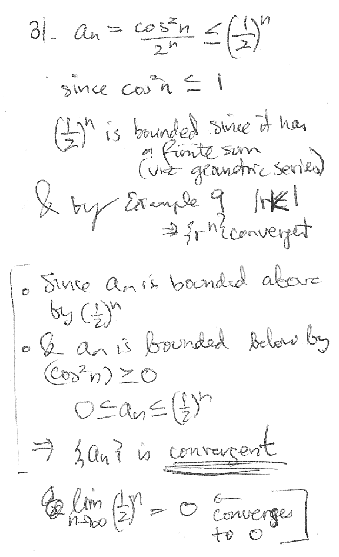 31. an = cos²n / 2ⁿ ≤ (1/2)ⁿ
since cos²n ≤ 1
(1/2)ⁿ is bounded since it has
a finite sum
(via geometric series)
& by Example 9 |r|<1
⇒ {rⁿ} converget
• Since an is bounded above
by (1/2)ⁿ
• & an is bounded below by
(cos²n) ≥ 0
0 ≤ an ≤ (1/2)ⁿ
⇒ {an} is convergent
& lim n→∞ (1/2)ⁿ = 0 ← converges
to 0